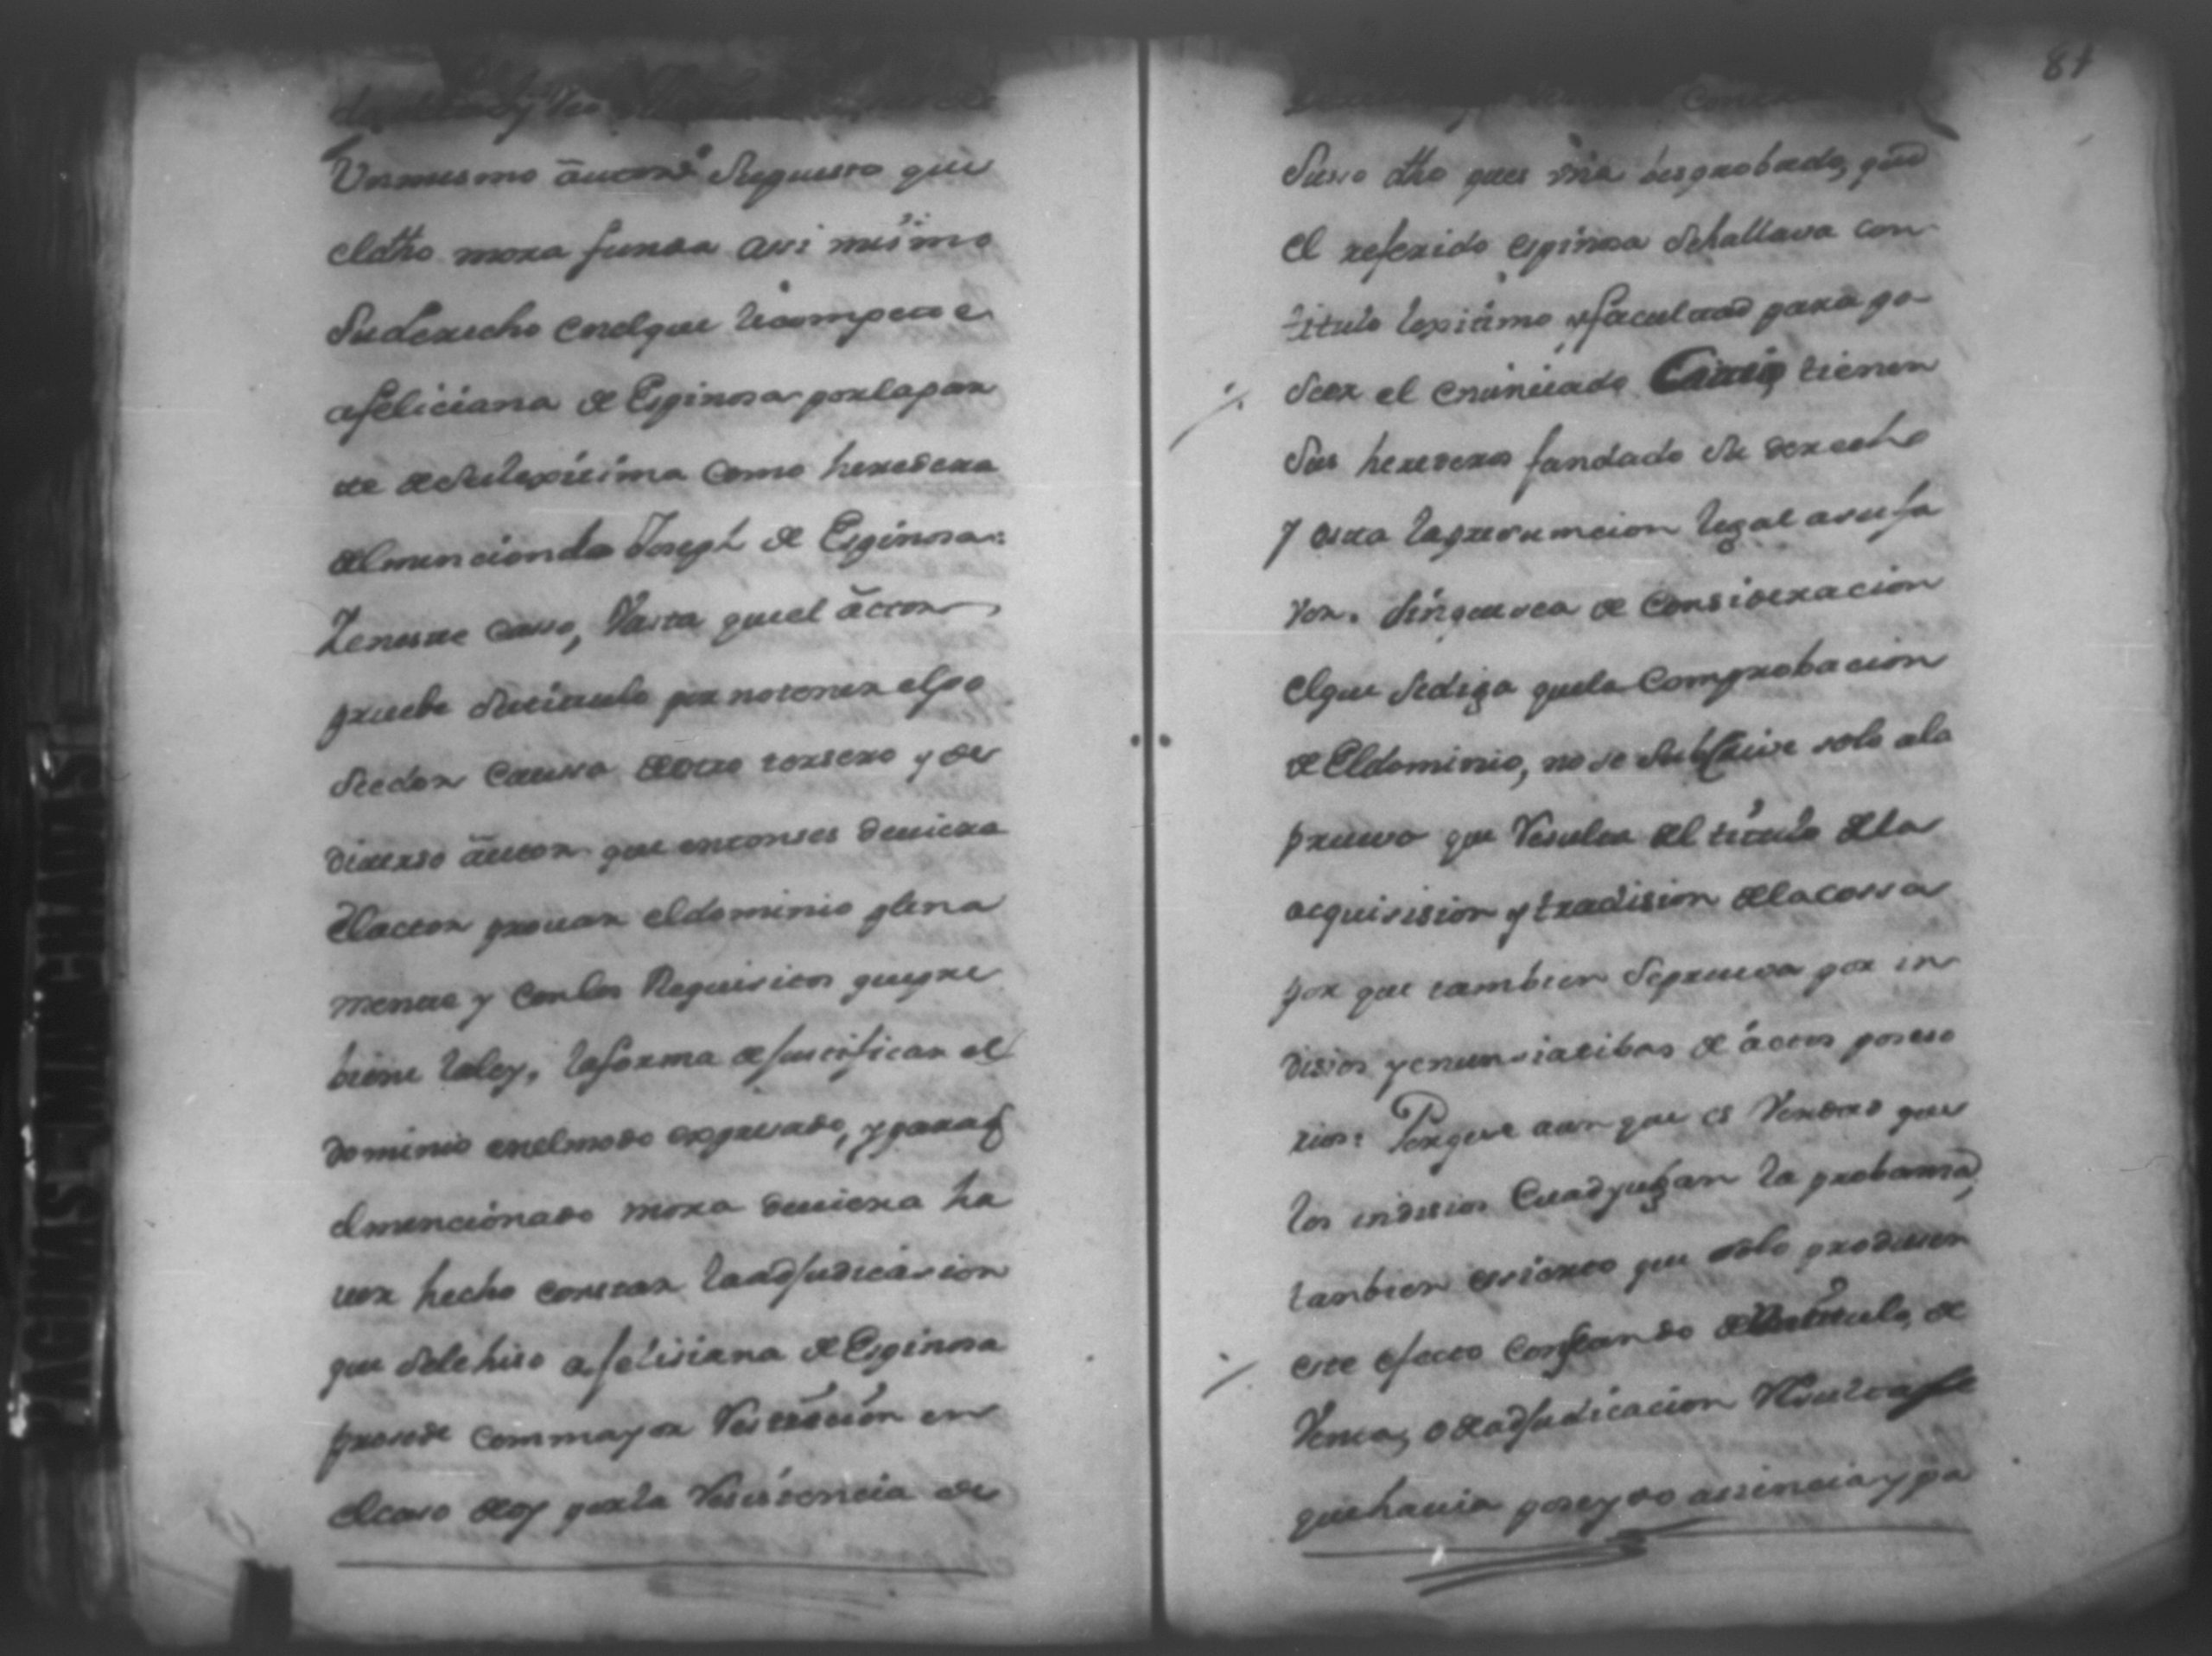 Vn mesmo auctor Supuesto que
el dho mora funda asi mismo
Su derecho en el que le compete
a feliciana de Espinosa por la par
te de su lexitima como heredera
del mencionado Joseph de Espinosa:
Y en este caso, Vasta que el actor
pruebe su titulo por no tener el po
seedor causa de otro tersero y de
diverso autor que entonses deviera
El actor provar el dominio plena
mente y con los Requisitos que pre
biene la ley, la forma de justificar el
dominio en el modo expresado, y para q
el mencionado mora deviera ha
ver hecho constar la adjudicasion
que se le hiso a felisiana de Espinosa
prosede com mayor en
el caso de oy por la Resistencia de
87
Suso dho pues vna bes probado, que
el referido espinosa se hallava con
titulo lexitimo y facultad para po
seer el enunciado tienen
sus herederos fundado su derecho
y esta la presumcion legal a su fa
vor. Sin que sea de consideracion
el que se diga que la comprobacion
de El dominio, no se solo a la
prueva que Resulta del titulo de la
acquisision y tradision de la cossa
por que tambien se prueva por in
disios y enunsiatibas de actos poseso
rios: Porque aun que es Verdad que
los indisios Cuadyuban la probansa,
tambien es sierto que solo produsen
este efecto constando del titulo, de
Venta, o de adjudicacion
que havia poseydo assiencia y pa